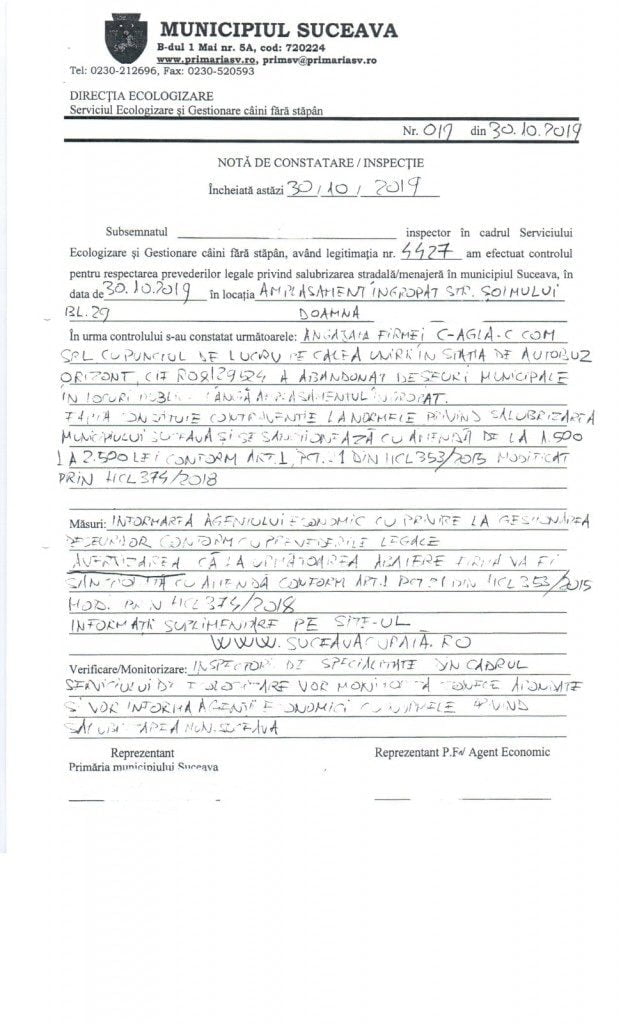 MUNICIPIUL SUCEAVA
B-dul 1 Mai nr. 5A, cod: 720224
www.primariasv.ro, primsv@primariasv.ro
Tel: 0230-212696, Fax: 0230-520593
DIRECȚIA ECOLOGIZARE
Serviciul Ecologizare și Gestionare câini fără stăpân
Nr. 017 din 30.10.2019
NOTĂ DE CONSTATARE / INSPECȚIE
Încheiată astăzi 30/10/2019
Subsemnatul inspector în cadrul Serviciului
Ecologizare și Gestionare câini fără stăpân, având legitimația nr. 4427 am efectuat controlul
pentru respectarea prevederilor legale privind salubrizarea stradală/menajeră în municipiul Suceava, în
data de 30.10.2019 în locația AMPLASAMENT ÎNGROPAT STR. ȘOIMULUI
BL.29 DOAMNA
În urma controlului s-au constatat următoarele: ANGAJATA FIRMEI C-AGLA-C COM
SRL CU PUNCTUL DE LUCRU PE CALEA UNIRII ÎN STAȚIA DE AUTOBUZ
ORIZONT, CIF A ABANDONAT DEȘEURI MUNICIPALE
ÎN LOCURI PUBLICE LÂNGĂ AMPLASAMENTUL ÎNGROPAT.
FAPTA CONSTITUIE CONTRAVENȚIE LA NORMELE PRIVIND SALUBRIZAREA
MUNICIPIULUI SUCEAVA ȘI SE SANCȚIONEAZĂ CU AMENDĂ DE LA 1.500
LA 2.500 LEI CONFORM ART.1, PCT. 1 DIN HCL 353/2015 MODIFICAT
PRIN HCL 374/2018
Măsuri: INFORMAREA AGENTULUI ECONOMIC CU PRIVIRE LA GESTIONAREA
DEȘEURILOR CONFORM CU PREVEDERILE LEGALE
AVERTIZAREA CĂ LA URMĂTOAREA ABATERE FIRMA VA FI
SANCȚIONATĂ CU AMENDĂ CONFORM ART.1 PCT. 1 DIN HCL 353/2015
MOD. PRIN HCL 374/2018
INFORMAȚII SUPLIMENTARE PE SITE-UL
WWW.SUCEAVACURATA.RO
Verificare/Monitorizare: INSPECTORI DE SPECIALITATE DIN CADRUL
SERVICIULUI DE ECOLOGIZARE VOR MONITORIZA
ȘI VOR INFORMA AGENȚII ECONOMICI CU NORMELE PRIVIND
SALUBRIZAREA MUN. SUCEAVA
Reprezentant Reprezentant P.F/ Agent Economic
Primăria municipiului Suceava